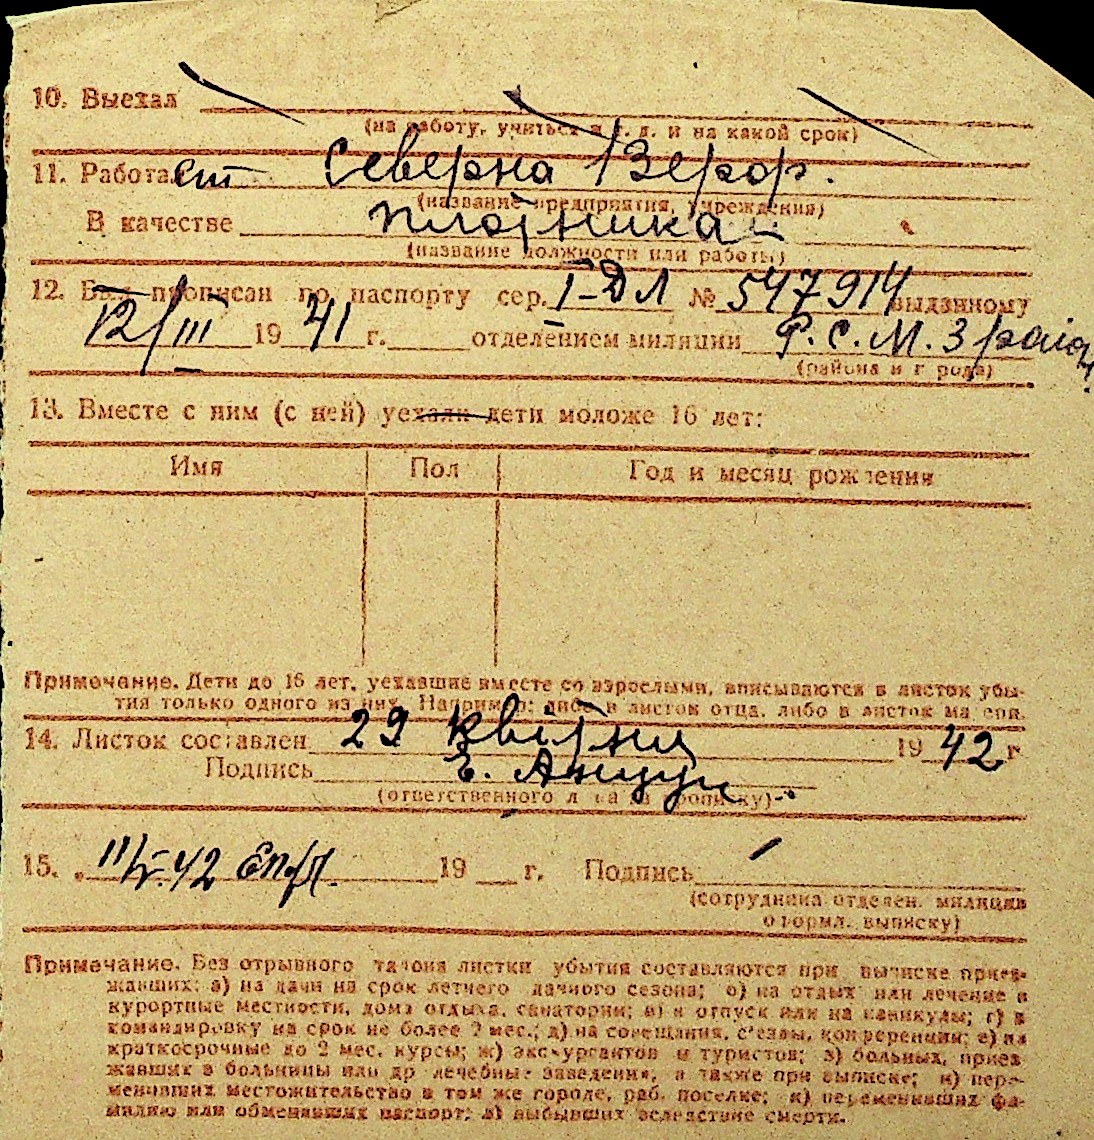 10. Выехал
(на работу, учиться и т. д. и на какой срок)
11. Работа ст Северна
(название предприятия, учреждения)
В качестве плотника
(название должности или работы)
12. Был прописан по паспорту сер. I-ДЛ № 547914 выданному
12/III 1941 г. отделением милиции Р. С. М. 3 район
(района и города)
13. Вместе с ним (с ней) уехали дети моложе 16 лет:
Имя Пол Год и месяц рождения
Примечание. Дети до 16 лет, уехавшие вместе со взрослыми, вписываются в листок убы-
тия только одного из них. Например: либо в листок отца, либо в листок матери.
14. Листок составлен 29 квітня 1942 г
Подпись Е.
(ответственного лица за прописку)
15. „ 11/V-42 19 г. Подпись
(сотрудника отделен. милиции
оформл. выписку)
Примечание. Без отрывного талона листки убытия составляются при выписке приез-
жавших: а) на дачи на срок летнего дачного сезона; б) на отдых или лечение в
курортные местности, дома отдыха, санатории; в) в отпуск или на каникулы; г) в
командировку на срок не более 2 мес.; д) на совещания, съезды, конференции; е) на
краткосрочные до 2 мес. курсы; ж) экскурсантов и туристов; з) больных, приез-
жавших в больницы или др лечебные заведения, а также при выписке; и) пере-
менивших местожительство в том же городе, раб. поселке; к) переменивших фа-
милию или обменявших паспорт; л) выбывших вследствие смерти.